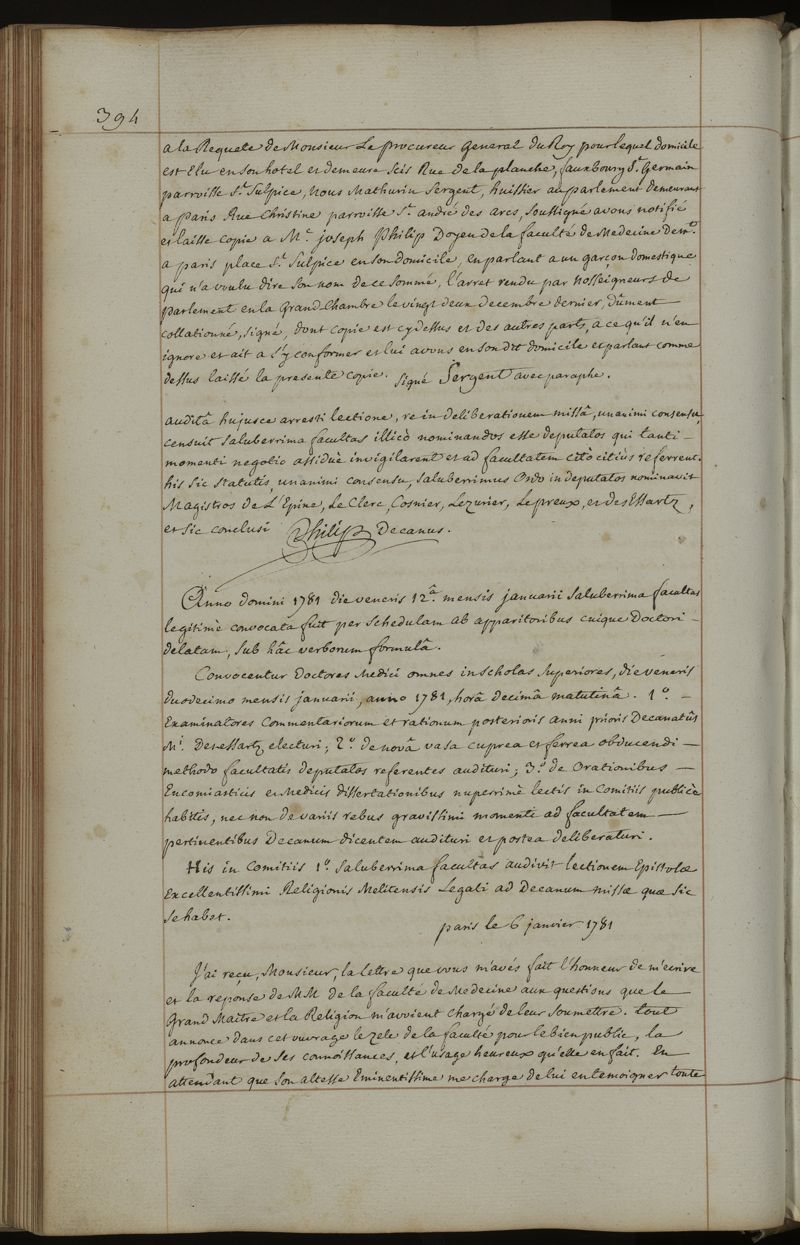 394
a la Requete de Monsieur Le procureur General du Roy pour lequel domicile
est Elu en son hotel et demeure Scis Rue de la planche, fauxbourg St. Germain
parroisse St. Sulpice, Nous Mathurin Sergent, huissier au parlement demeurant
a Paris Rue Christine parroisse St. andré des arcs, Soussigné avons notifié
et laissé copie a Me. joseph Philip Doyen de la faculté de Medecine demt.
a paris place St. Sulpice en son domicile, en parlant a un garçon domestique
qui n'a voulu dire son nom de ce sommé, l'arret rendu par nosseigneurs de
parlement en la Grand Chambre le vingt deux Decembre dernier, dûment
collationné, signé, dont copie est cy dessus et des autres parts, a ce qu'il n'en
ignore et ait a s'y conformer et lui avons en son dit domicile et parlant comme
dessus laissé la presente copie. Signé Sergent avec paraphe.
auditâ hujusce arresti lectione, re in deliberationem missâ, unanimi consensu
censuit saluberrima facultas illicò nominandos esse deputatos qui tanti
momenti negotio assiduè invigilarent et ad facultatem citò citiùs referrent.
his sic statutis, unanimi consensu, saluberrimus Ordo in deputatos nominavit
Magistros de L'Epine, Le Clerc, Cosnier, Lezurier, Lepreux, et des Essartz,
et sic conclusi Philip Decanus.
Anno domini 1781 die veneris 12â. mensis januarii Saluberrima facultas
legitimè convocata fuit per schedulam ab apparitoribus cuique Doctori
delatam, sub hâc verborum formulâ.
Convocentur Doctores Medici omnes in scholas superiores, die veneris
duodecimo mensis januarii, anno 1781, horâ decimâ matutinâ. 1o. –
Examinatores Commentariorum et rationum posterioris anni prioris Decanatûs
Mi. Desessartz electuri; 2o. de novâ vasa cuprea et ferrea obducendi –
methodo facultatis deputatos referentes audituri; 3o. de Orationibus –
Encomiasticis et Medicis dissertationibus nuperrimè lectis in Comitiis publicè
habitis, nec non de variis rebus gravissimi momenti ad facultatem –
pertinentibus Decanum dicentem audituri et postea deliberaturi.
His in Comitiis 1o. Saluberrima facultas audivit lectionem Epistolæ
Excellentissimi Religionis Melitensis Legati ad Decanum missæ quæ sic
se habet.
paris le 6 janvier 1781
J'ai reçu, Monsieur, la lettre que vous m'avés fait l'honneur de m'ecrire
et la reponse de MM de la faculté de Medecine aux questions que le
Grand Maitre et la Religion m'avoient chargé de leur soumettre. tout
annonce dans cet ouvrage le zele de la faculté pour le bien public, la
profondeur de ses connoissances, et l'usage heureux qu'elle en fait. En
attendant que son altesse Eminentissime me charge de lui en temoigner toute